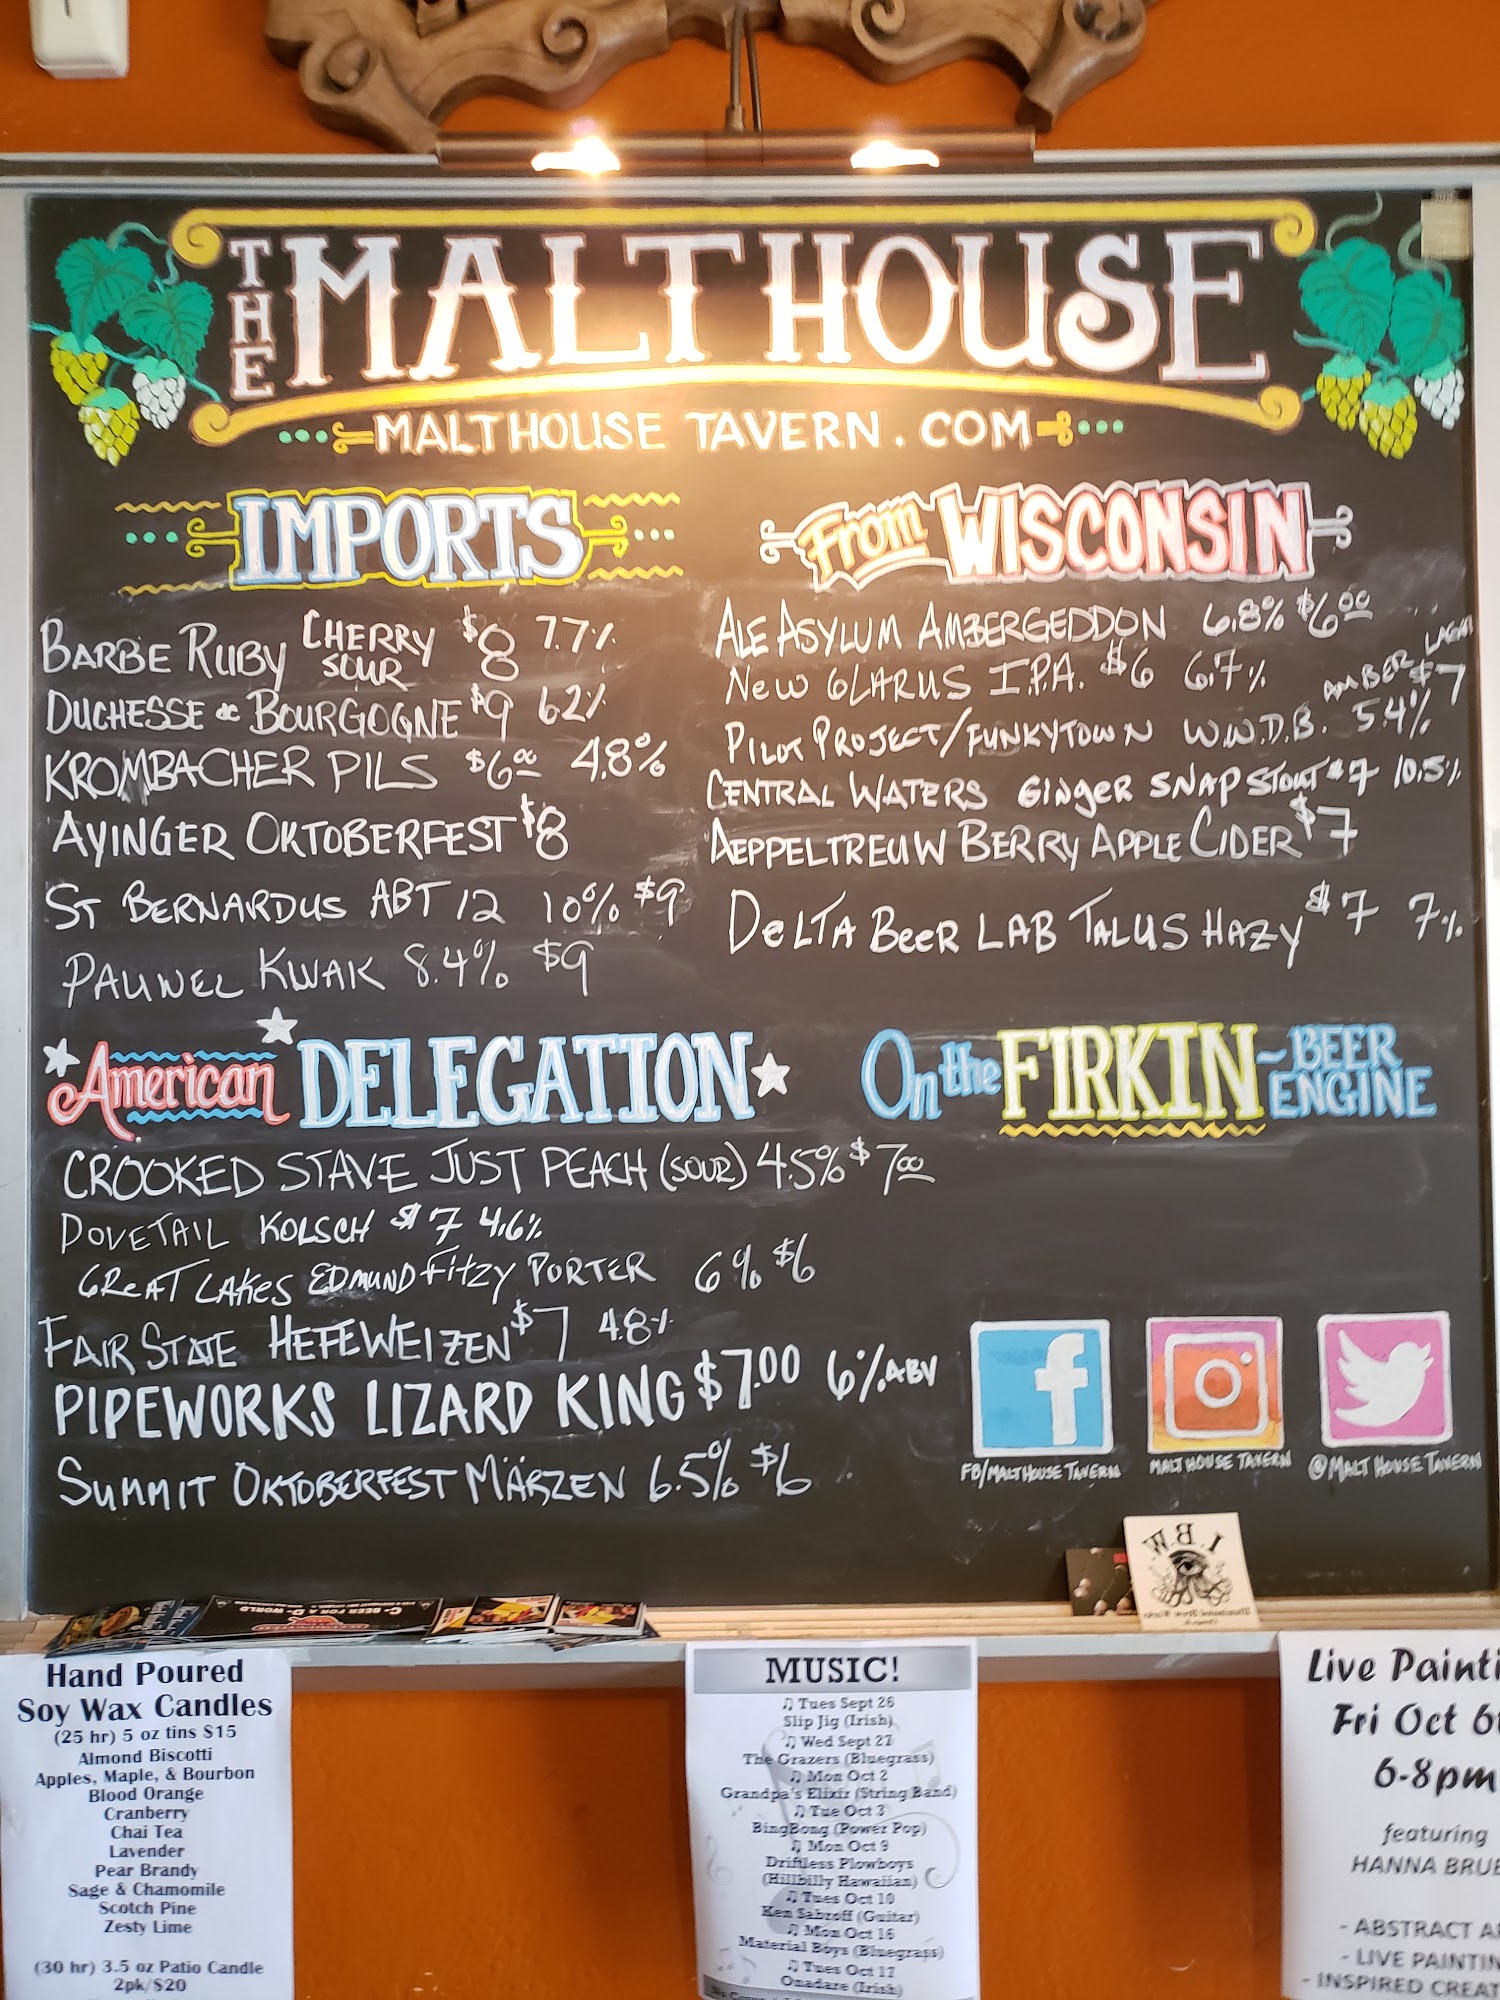 THE MALTHOUSE
MALTHOUSE TAVERN.COM
IMPORTS
BARBE RUBY CHERRY SOUR $8 7.7%
DUCHESSE de BOURGOGNE $9 6.2%
KROMBACHER PILS $6.00 4.8%
AYINGER OKTOBERFEST $8
ST BERNARDUS ABT 12 10% $9
PAUWEL KWAK 8.4% $9
From WISCONSIN
ALE ASYLUM AMBERGEDDON 6.8% $6.00
NEW GLARUS I.P.A. $6 6.7%
PILOT PROJECT/FUNKYTOWN W.W.D.B. AMBER LAGER 5.4% $7
CENTRAL WATERS GINGER SNAP STOUT $7 10.5%
AEPPELTREUW BERRY APPLE CIDER $7
DELTA BEER LAB TALUS HAZY $7 7%
American DELEGATION
CROOKED STAVE JUST PEACH (SOUR) 4.5% $7.00
DOVETAIL KOLSCH $7 4.6%
GREAT LAKES EDMUND FITZY PORTER 6% $6
FAIR STATE HEFEWEIZEN $7 4.8%
PIPEWORKS LIZARD KING $7.00 6% ABV
SUMMIT OKTOBERFEST MÄRZEN 6.5% $6
On the FIRKIN ~ BEER ENGINE
FB/MALTHOUSE TAVERN
MALTHOUSE TAVERN
@MALT HOUSE TAVERN
I.B.W.
Hand Poured
Soy Wax Candles
(25 hr) 5 oz tins $15
Almond Biscotti
Apples, Maple, & Bourbon
Blood Orange
Cranberry
Chai Tea
Lavender
Pear Brandy
Sage & Chamomile
Scotch Pine
Zesty Lime
(30 hr) 3.5 oz Patio Candle
2pk/$20
MUSIC!
♫ Tues Sept 26
Slip Jig (Irish)
♫ Wed Sept 27
The Grazers (Bluegrass)
♫ Mon Oct 2
Grandpa's Elixir (String Band)
♫ Tue Oct 3
BingBong (Power Pop)
♫ Mon Oct 9
Driftless Plowboys
(Hillbilly Hawaiian)
♫ Tues Oct 10
Ken Sabroff (Guitar)
♫ Mon Oct 16
Material Boys (Bluegrass)
♫ Tues Oct 17
Onadare (Irish)
Live Painti
Fri Oct 6
6-8pm
featuring
HANNA BRUE
- ABSTRACT A
- LIVE PAINTIN
- INSPIRED CREAT